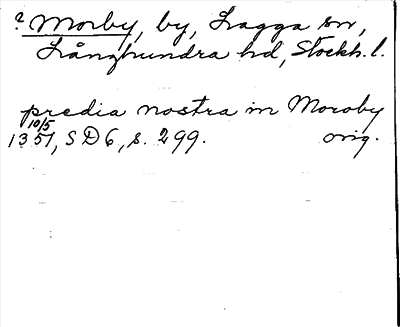 ? Morby, by, Lagga sn,
Långhundra hd, Stockh. l.
predia nostra in Moroby
10/5
1351, SD 6, s. 299. orig.